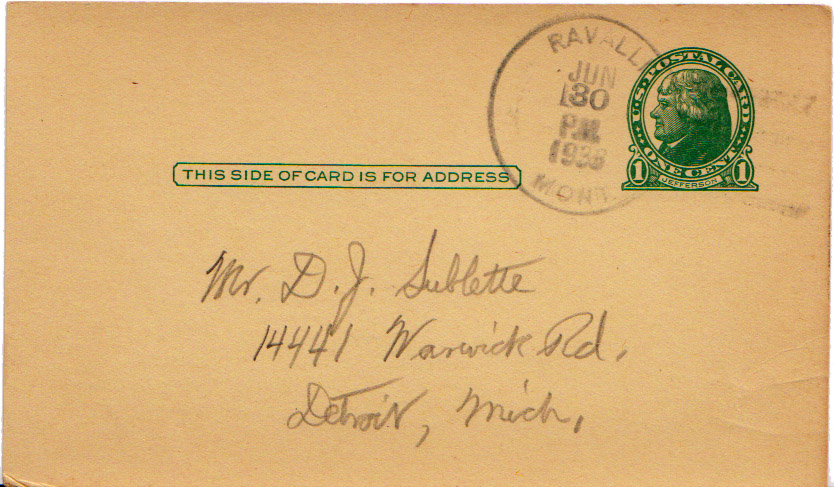 RAVALLI
JUN
30
P.M.
MONT.
U.S. POSTAL CARD
ONE CENT
1 JEFFERSON 1
THIS SIDE OF CARD IS FOR ADDRESS
Mr. D. J. Sublette
14441 Warwick Rd.
Detroit, Mich.